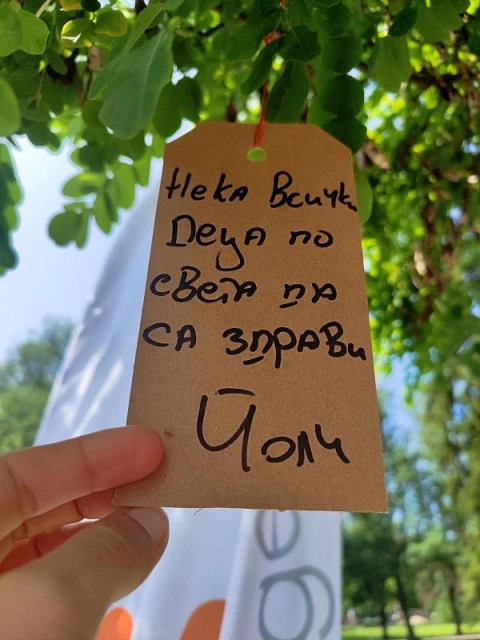 Нека Всички
Деца по
света да
са здрави
Йоли
ge